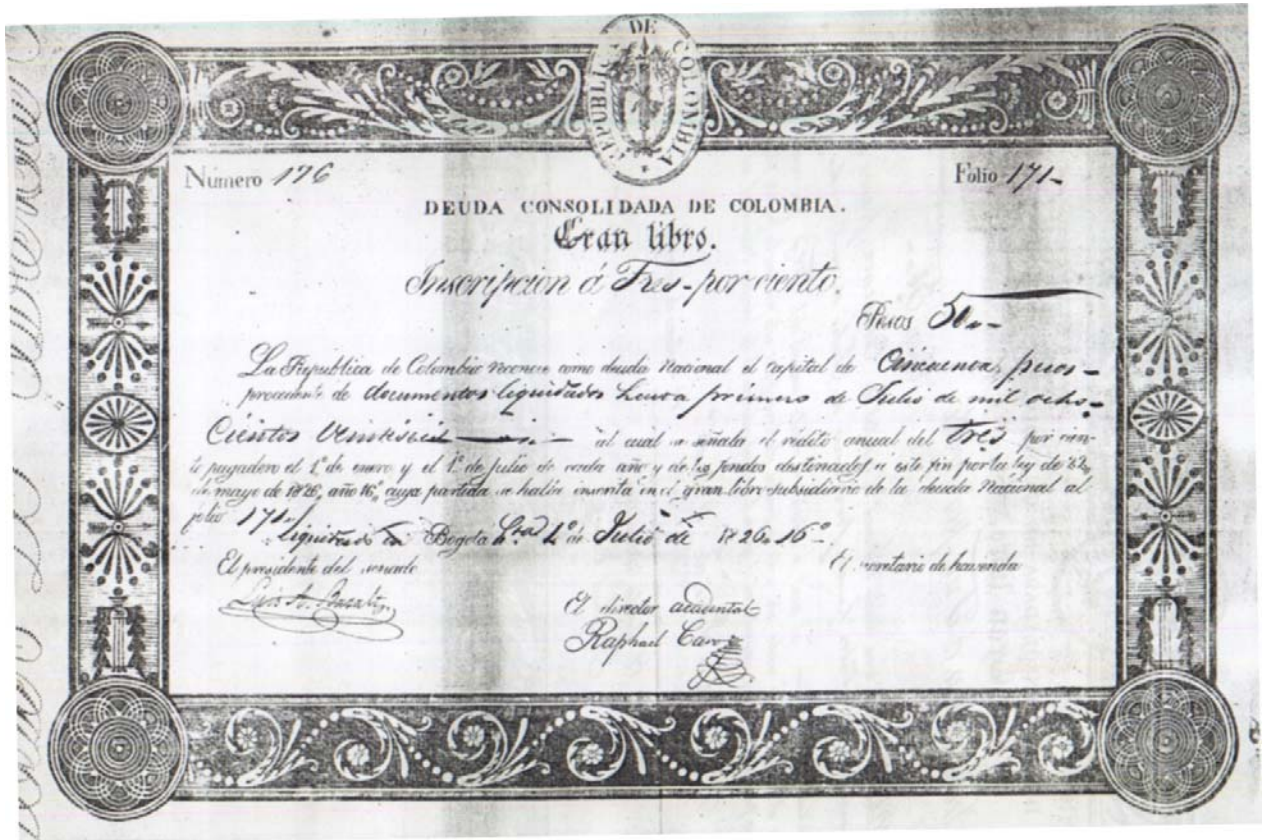 REPUBLICA DE COLOMBIA
Número 176
Folio 171
DEUDA CONSOLIDADA DE COLOMBIA.
Gran libro.
Inscripcion á Tres por ciento.
Pesos 50
La República de Colombia reconoce como deuda nacional el capital de Cincuenta pesos
procedente de documentos liquidados hasta primero de Julio de mil ocho
Cientos Veintiseis al cual se señala el rédito anual del tres por cien-
to pagadero el 1º de enero y el 1º de julio de cada año y de los fondos destinados a este fin por la ley de 22
de mayo de 1826, año 16º, cuya partida se halla inscrita en el gran libro subsidiario de la deuda nacional al
folio 171
liquidado en Bogotá 1º de Julio de 1826. 16º
El presidente del senado
El secretario de hacienda
Luis A. Baralt
El director accidental
Raphael Caro